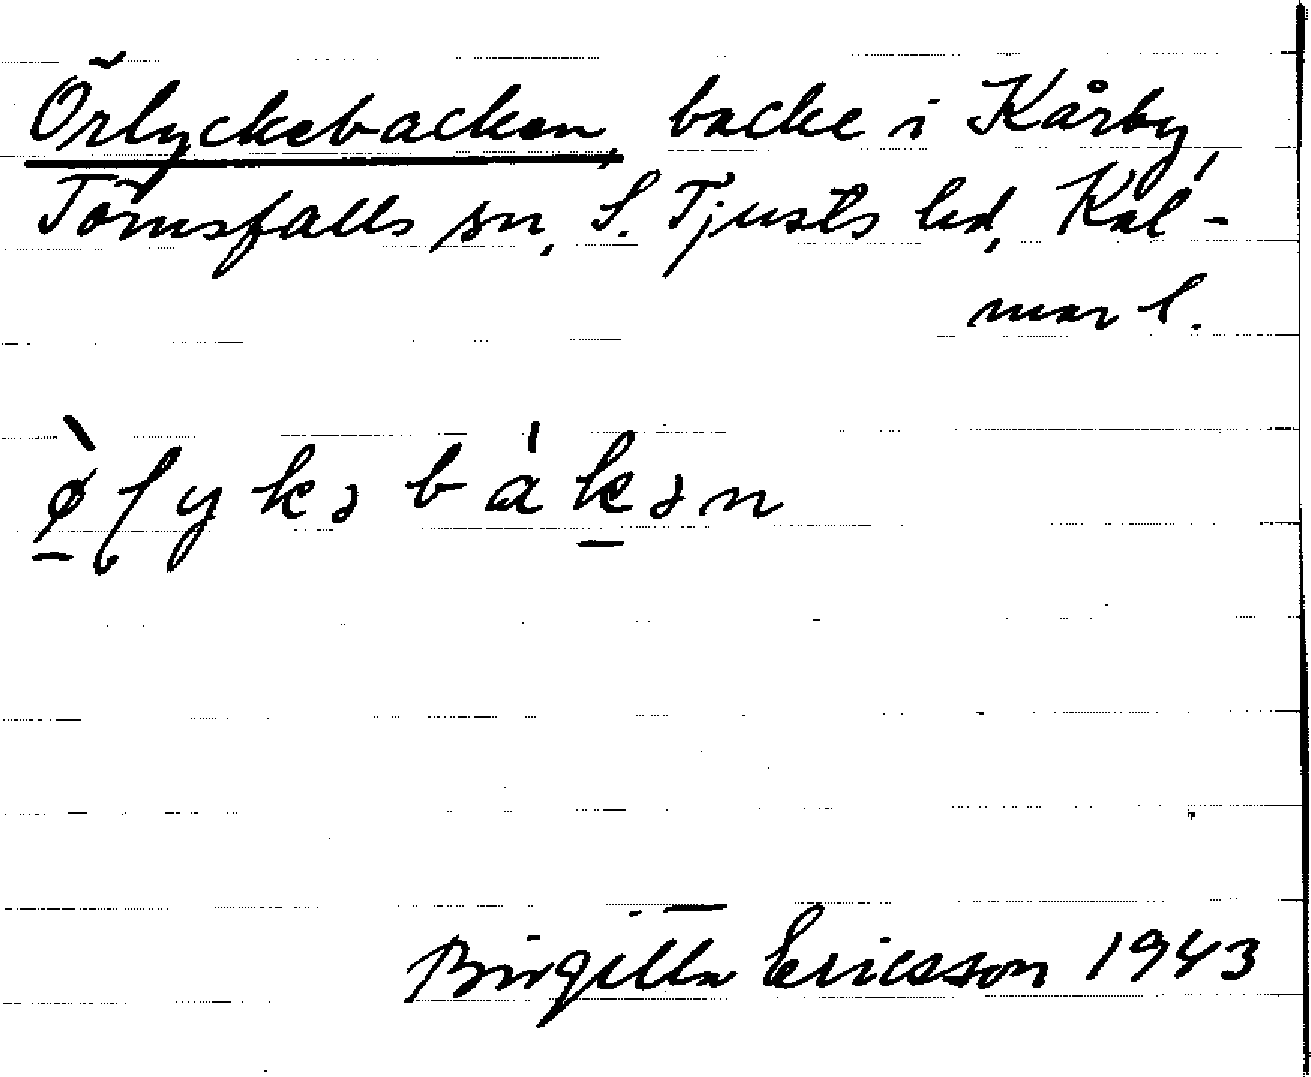 Örlyckebacken, backe i Kårby,
Törnsfalls sn, S. Tjusts hd, Kal-
mar l.
ø̠̀ɭykəbák̠ən
Birgitta Ericsson 1943